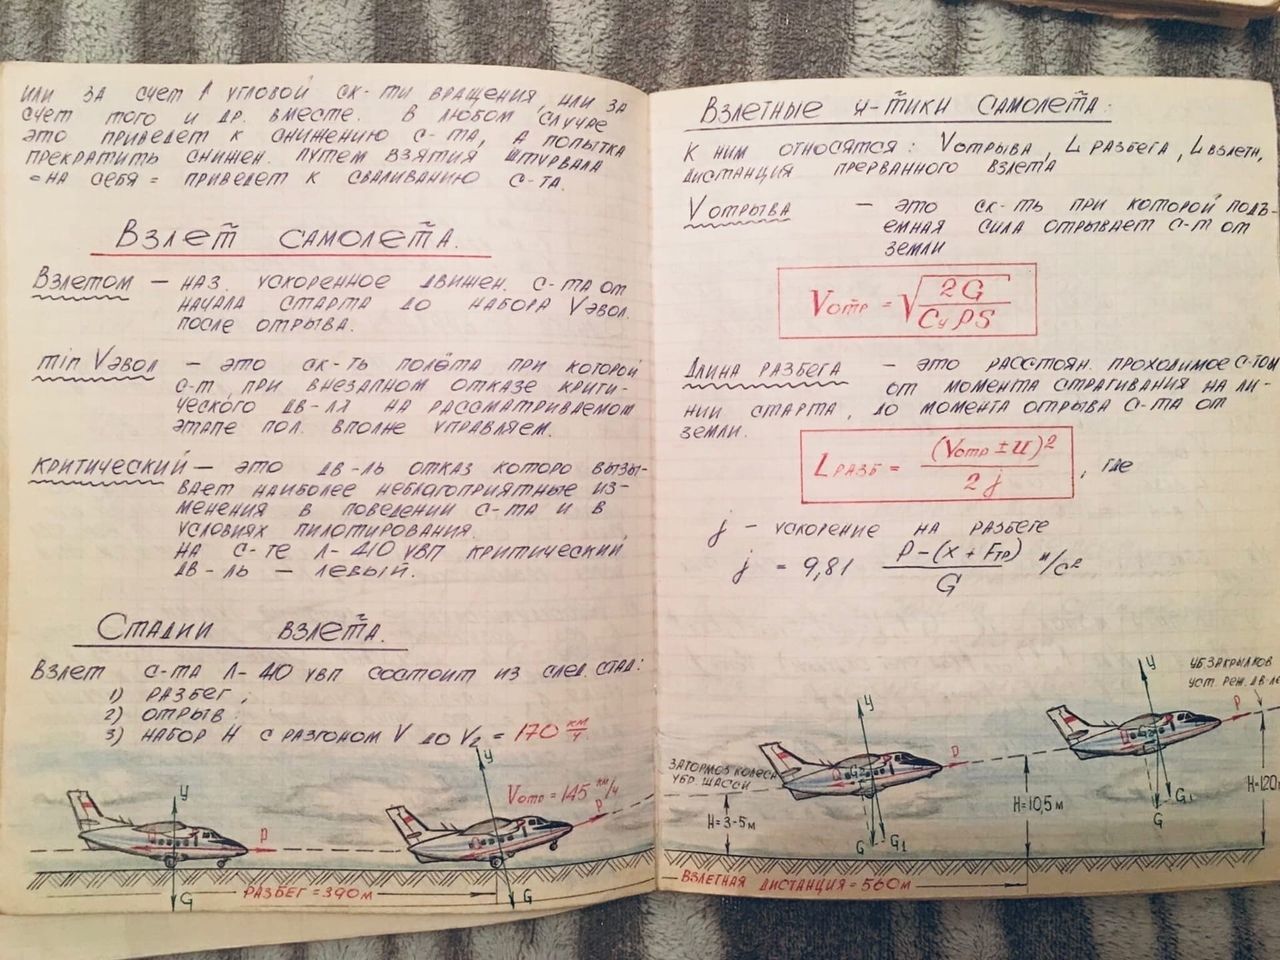 или за счет ↑ угловой ск-ти вращения, или за
счет того и др. вместе. В любом случае
это приведет к снижению с-та, а попытка
прекратить снижен. путем взятия штурвала
=на себя= приведет к сваливанию с-та.
Взлет самолета.
Взлетом — наз. ускоренное движен. с-та от
начала старта до набора Vэвол.
после отрыва.
min Vэвол — это ск-ть полёта при которой
с-т при внезапном отказе крити-
ческого дв-ля на рассматриваемом
этапе пол. вполне управляем.
Критический — это дв-ль отказ которо вызы-
вает наиболее неблагоприятные из-
менения в поведении с-та и в
условиях пилотирования.
На с-те Л-410 УВП критический
дв-ль — левый.
Стадии взлета.
Взлет с-та Л-410 УВП состоит из след. стад:
1) разбег;
2) отрыв:
3) набор H с разгоном V до V₂ = 170 км/ч.
y
P
G
Разбег = 390 м
y
Vотр = 145 км/ч
P
G
Взлетные х-тики самолета.
К ним относятся: Vотрыва, L разбега, L взлетн,
дистанция прерванного взлета
Vотрыва — это ск-ть при которой подъ-
емная сила отрывает с-т от
земли
Vотр = √(2G / CуρS)
Длина разбега — это расстоян. проходимое с-том
от момента страгивания на ли-
нии старта, до момента отрыва с-та от
земли.
Lразб = (Vотр ± U)² / 2j , где
j — ускорение на разбеге
j = 9,81 (P − (x + Fтр)) / G м/с²
Затормоз колеса
Убр. шасси
H=3-5м
y
P
G
G₁
H=10,5м
Взлетная дистанция = 560м
y
Уб закрылков
Уст. реж. дв-ле
P
G₁
G
H=120м